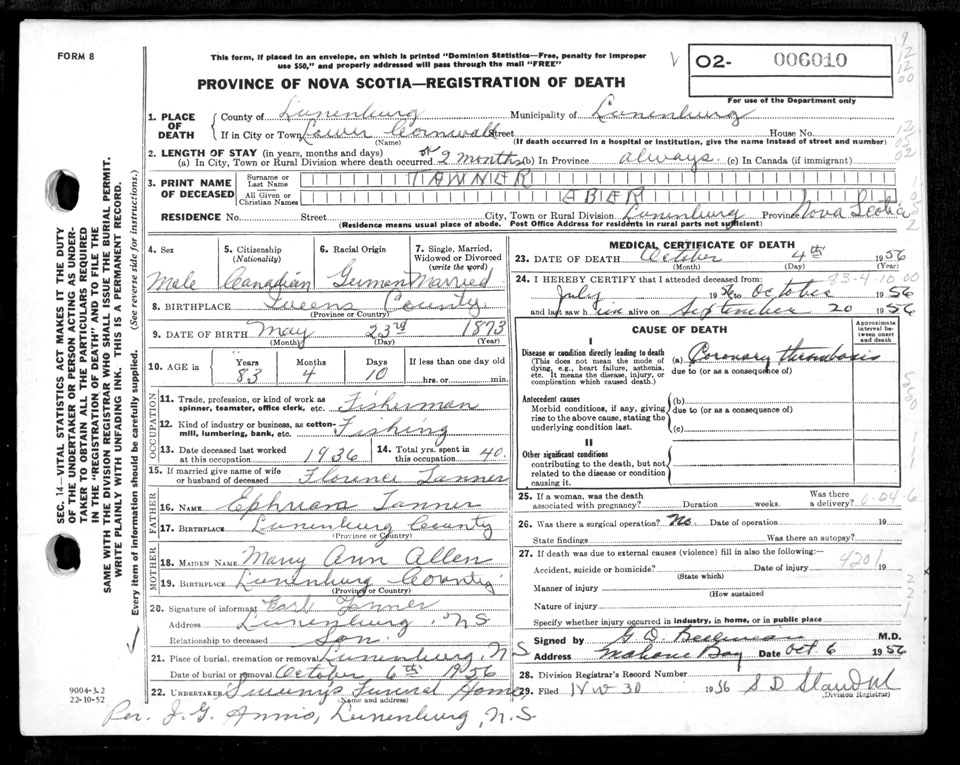 FORM 8
This form, if placed in an envelope, on which is printed "Dominion Statistics—Free, penalty for improper
use $50," and properly addressed will pass through the mail "FREE"
PROVINCE OF NOVA SCOTIA—REGISTRATION OF DEATH
O2- 006010
For use of the Department only
1. PLACE OF DEATH
County of Lunenburg Municipality of Lunenburg
If in City or Town Lower Cornwall Street House No.
(Name) (If death occurred in a hospital or institution, give the name instead of street and number)
2. LENGTH OF STAY (in years, months and days)
(a) In City, Town or Rural Division where death occurred 2 months (b) In Province always. (c) In Canada (if immigrant)
3. PRINT NAME OF DECEASED
Surname or Last Name TANNER
All Given or Christian Names EBER
RESIDENCE No. Street City, Town or Rural Division Lunenburg Province Nova Scotia
(Residence means usual place of abode. Post Office Address for residents in rural parts not sufficient)
4. Sex 5. Citizenship (Nationality) 6. Racial Origin 7. Single, Married, Widowed or Divorced (write the word)
Male Canadian German Married
8. BIRTHPLACE Queens County
(Province or County)
9. DATE OF BIRTH May 23rd 1873
(Month) (Day) (Year)
10. AGE in Years Months Days If less than one day old
83 4 10 hrs. or min.
OCCUPATION
11. Trade, profession, or kind of work as spinner, teamster, office clerk, etc. Fisherman
12. Kind of industry or business, as cotton-mill, lumbering, bank, etc. Fishing
13. Date deceased last worked at this occupation 1936 14. Total yrs. spent in this occupation 40.
15. If married give name of wife or husband of deceased Florence Tanner
FATHER
16. NAME Ephriam Tanner
17. BIRTHPLACE Lunenburg County
(Province or Country)
MOTHER
18. MAIDEN NAME Mary Ann Allen
19. BIRTHPLACE Lunenburg County
(Province or Country)
20. Signature of informant Earl Tanner
Address Lunenburg, N.S
Relationship to deceased Son.
21. Place of burial, cremation or removal Lunenburg, N.S
Date of burial or removal October 6th 1956
22. UNDERTAKER Funeral Home,
(Name and address)
Per. J. G. Lunenburg, N.S.
MEDICAL CERTIFICATE OF DEATH
23. DATE OF DEATH October 4th 1956
(Month) (Day) (Year)
24. I HEREBY CERTIFY that I attended deceased from: 83-4-10-00
July 1956 to October 1956
and last saw him alive on September 20 1956
CAUSE OF DEATH
Approximate interval between onset and death
I
Disease or condition directly leading to death (a) Coronary thrombosis
(This does not mean the mode of dying, e.g., heart failure, asthenia, etc. It means the disease, injury, or complication which caused death.)
due to (or as a consequence of)
Antecedent causes (b)
Morbid conditions, if any, giving rise to the above cause, stating the underlying condition last.
due to (or as a consequence of)
(c)
II
Other significant conditions
contributing to the death, but not related to the disease or condition causing it.
25. If a woman, was the death associated with pregnancy? Duration weeks. Was there a delivery? 0-04-6
26. Was there surgical operation? No. Date of operation 19
State findings Was there an autopsy?
27. If death was due to external causes (violence) fill in also the following:—
Accident, suicide or homicide? Date of injury 19
4201
(State which)
Manner of injury
(How sustained
Nature of injury
Specify whether injury occurred in industry, in home, or in public place
Signed by G. D. M.D.
Address Mahone Bay Date Oct. 6 1956
28. Division Registrar's Record Number
29. Filed Nov 30 1956 S D
(Division Registrar)
SEC. 14—VITAL STATISTICS ACT MAKES IT THE DUTY
OF THE UNDERTAKER OR PERSON ACTING AS UNDER-
TAKER TO OBTAIN ALL THE PARTICULARS REQUIRED
IN THE "REGISTRATION OF DEATH" AND TO FILE THE
SAME WITH THE DIVISION REGISTRAR WHO SHALL ISSUE THE BURIAL PERMIT.
WRITE PLAINLY WITH UNFADING INK. THIS IS A PERMANENT RECORD.
Every item of information should be carefully supplied. (See reverse side for instructions.)
9004-3.2
22-10-52